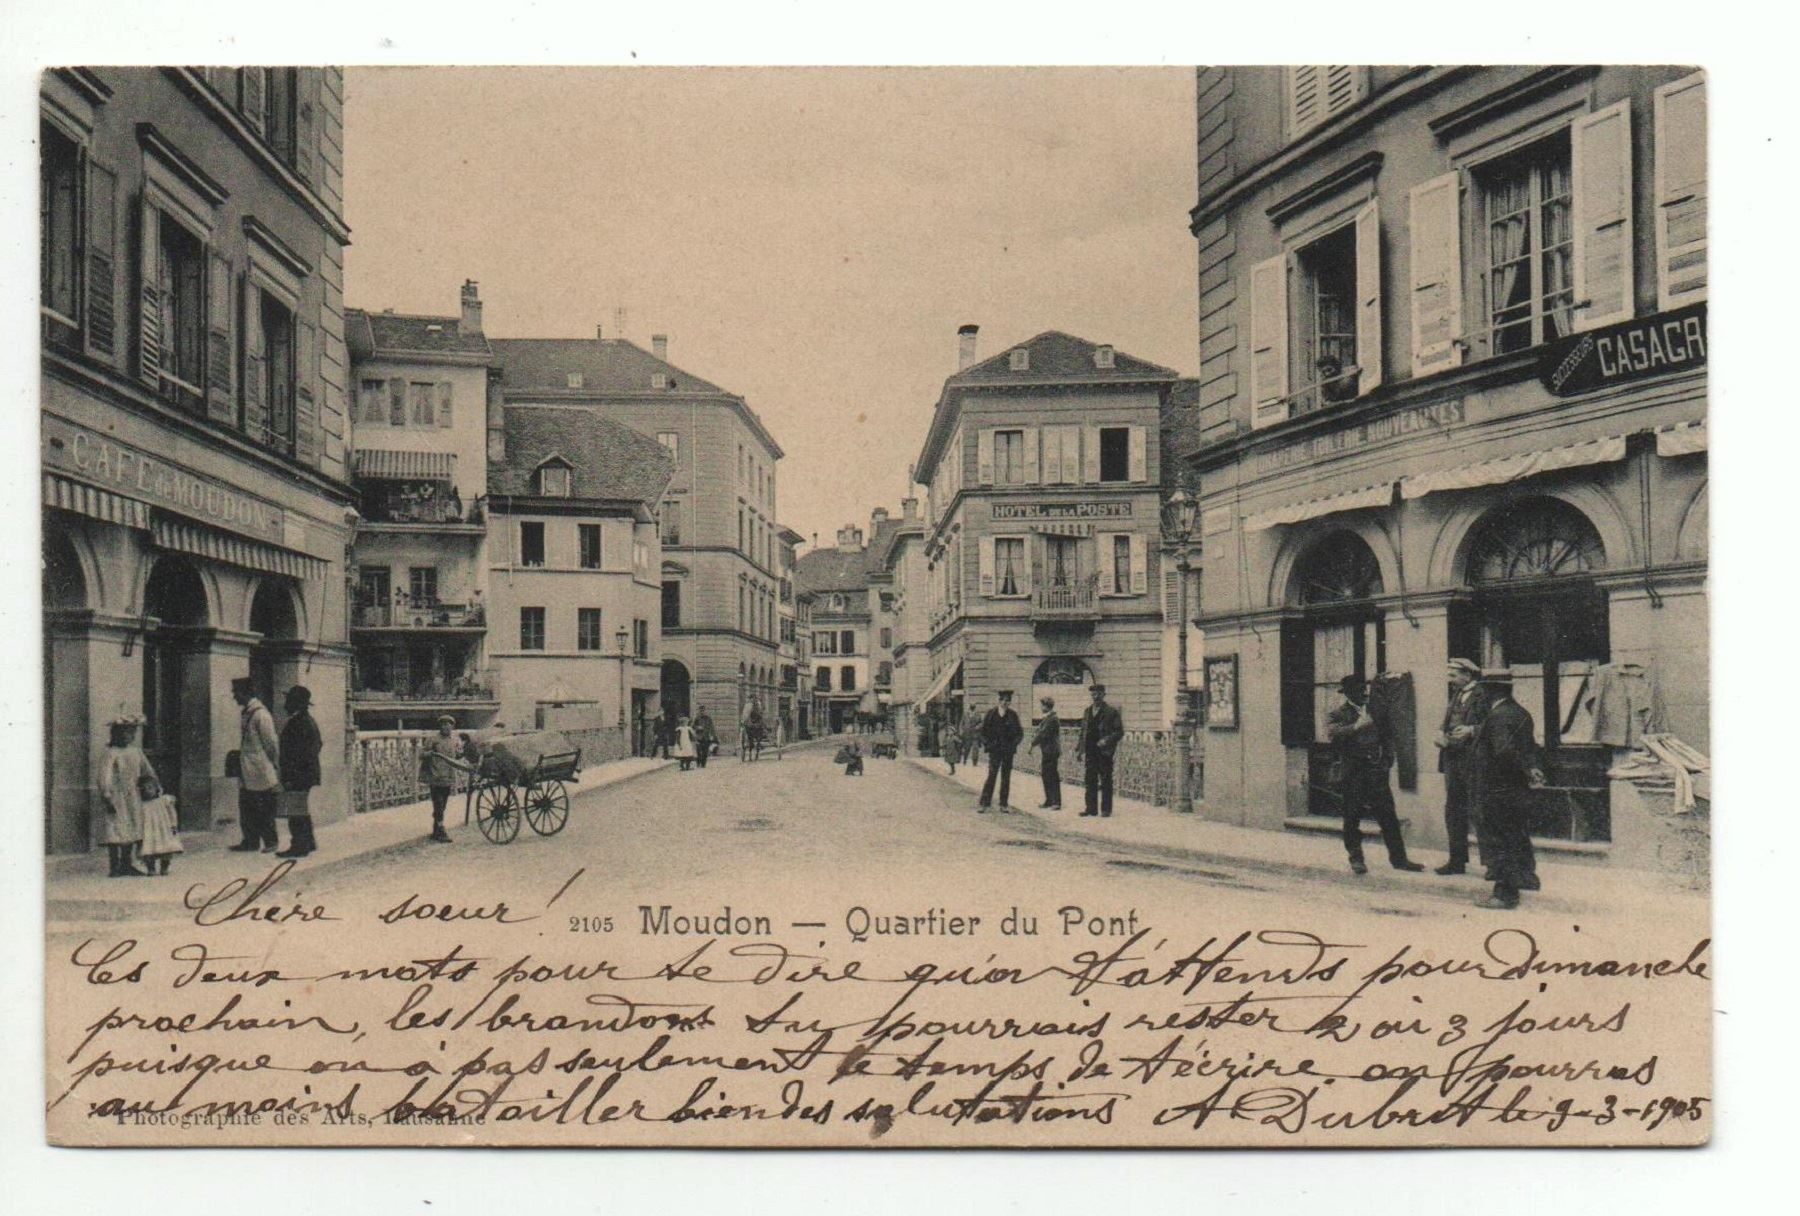 CAFE de MOUDON
HOTEL DE LA POSTE
SUCCESSEURS
CASAGR
NOUVEAUTES
Chère soeur!
2105 Moudon — Quartier du Pont
Ces deux mots pour te dire qu'on t'attends pour Dimanche
prochain, les brandons tu pourrais rester 2 ou 3 jours
puisque on a pas seulement le temps de técrire on pourras
au moins batailler bien des salutations A Dubrit le 9-3-1905
Photographie des Arts, Lausanne